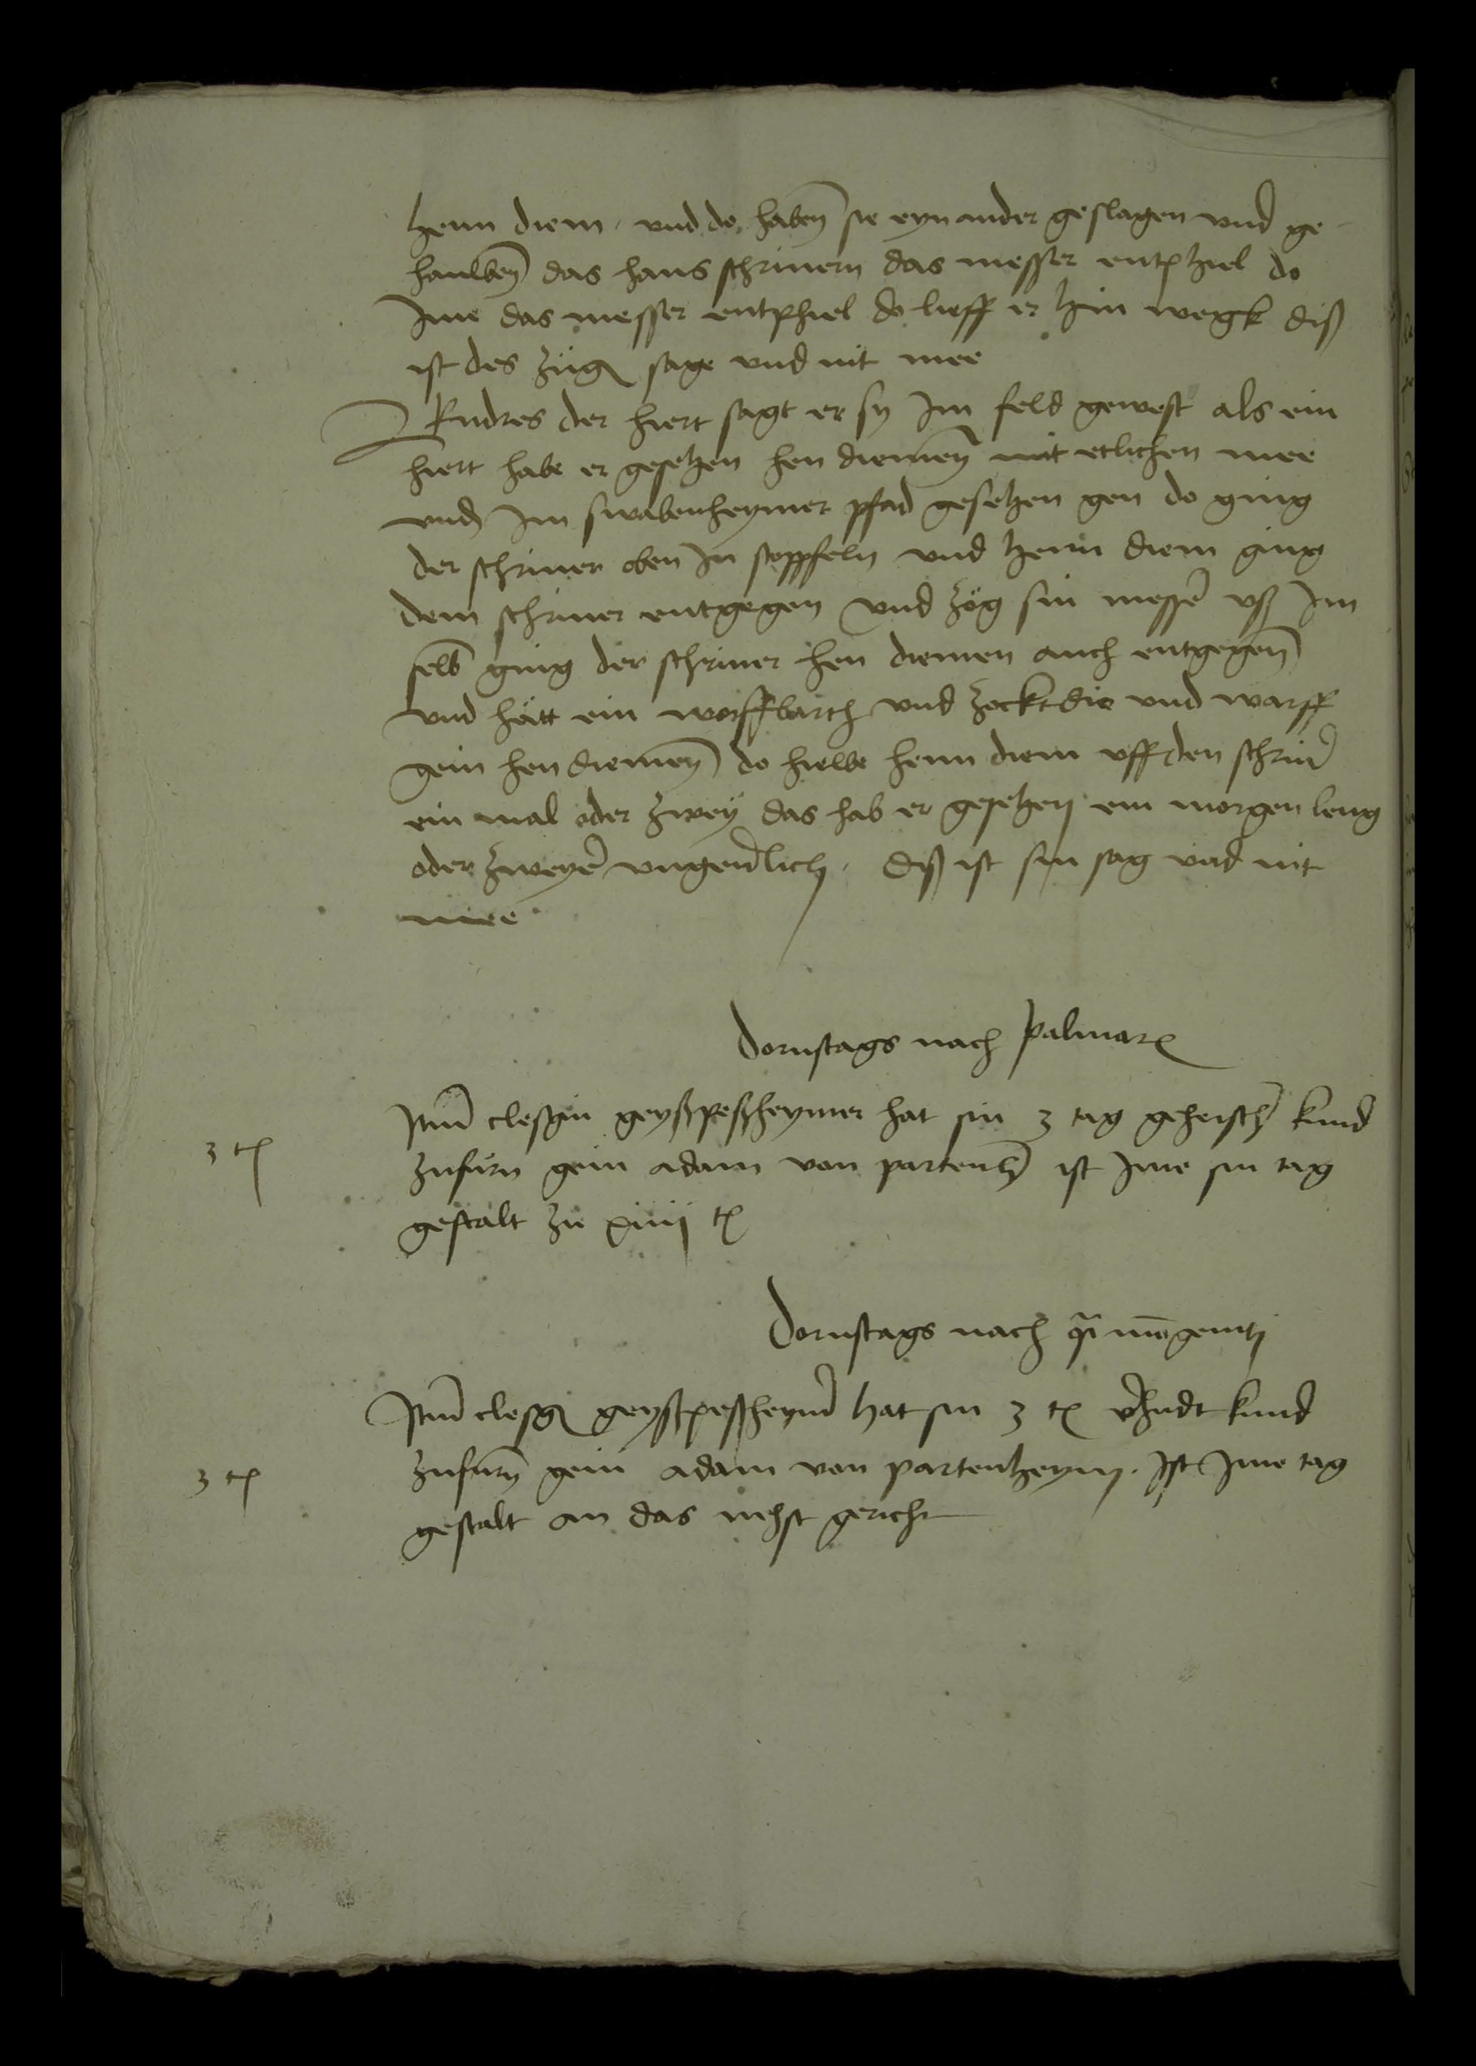 henn diem · und do haben sie eyn ander geslagen und ge
hauwen das hans schrinern das messer entphiel do
Ime das messer entphiel do lieff er hin wegk diß
ist des zugen sage und nit mee
Endres der hiert sagt er sy Im feld gewest als ein
hiert habe er gesehen hen diemen mit etlichen mee
und Im swabenheymer pfad gesehen gen do ging
der schriner oben In stoppfeln und henn diem ging
dem schriner entgegen und zog sin messer uß Im
selb ging der schriner hen diemen auch entgegen
und hatt ein worffbarth und zockt die und warff
gein hen diemen do hiewe henn diem uff den schriner
ein mal oder zwey das hab er gesehen ein morgen leng
oder zweyer ungeverlich · diß ist sin sag und nit
mee
Dornstags nach palmarum
Item clesgin geyßpeßheymer hat sin 3 tag geheischen kund
3 tag
zu furn gein adam von partenheim ist Ime sin tag
gestalt zu xiiij tagen
Dornstags nach quasimodogeniti
Item clesgin geyßpeßheymer hat sin 3 tag verhudt kund
3 tag
zu furn gein adam von partenheym · Ist Ime tag
gestalt an das nehst gericht